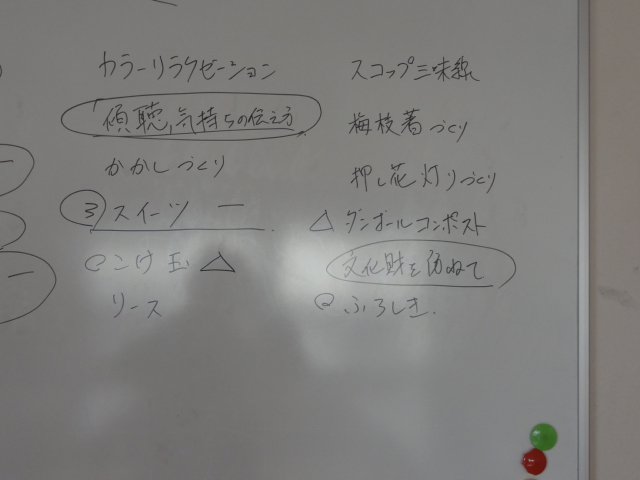 カラーリラクゼーション
傾聴,気持ちの伝え方
かかしづくり
③スイーツ ー
こけ玉 △
リース
スコップ三味線
梅枝著づくり
押し花灯りづくり
△ ダンボールコンポスト
文化財を訪ねて
ふろしき.